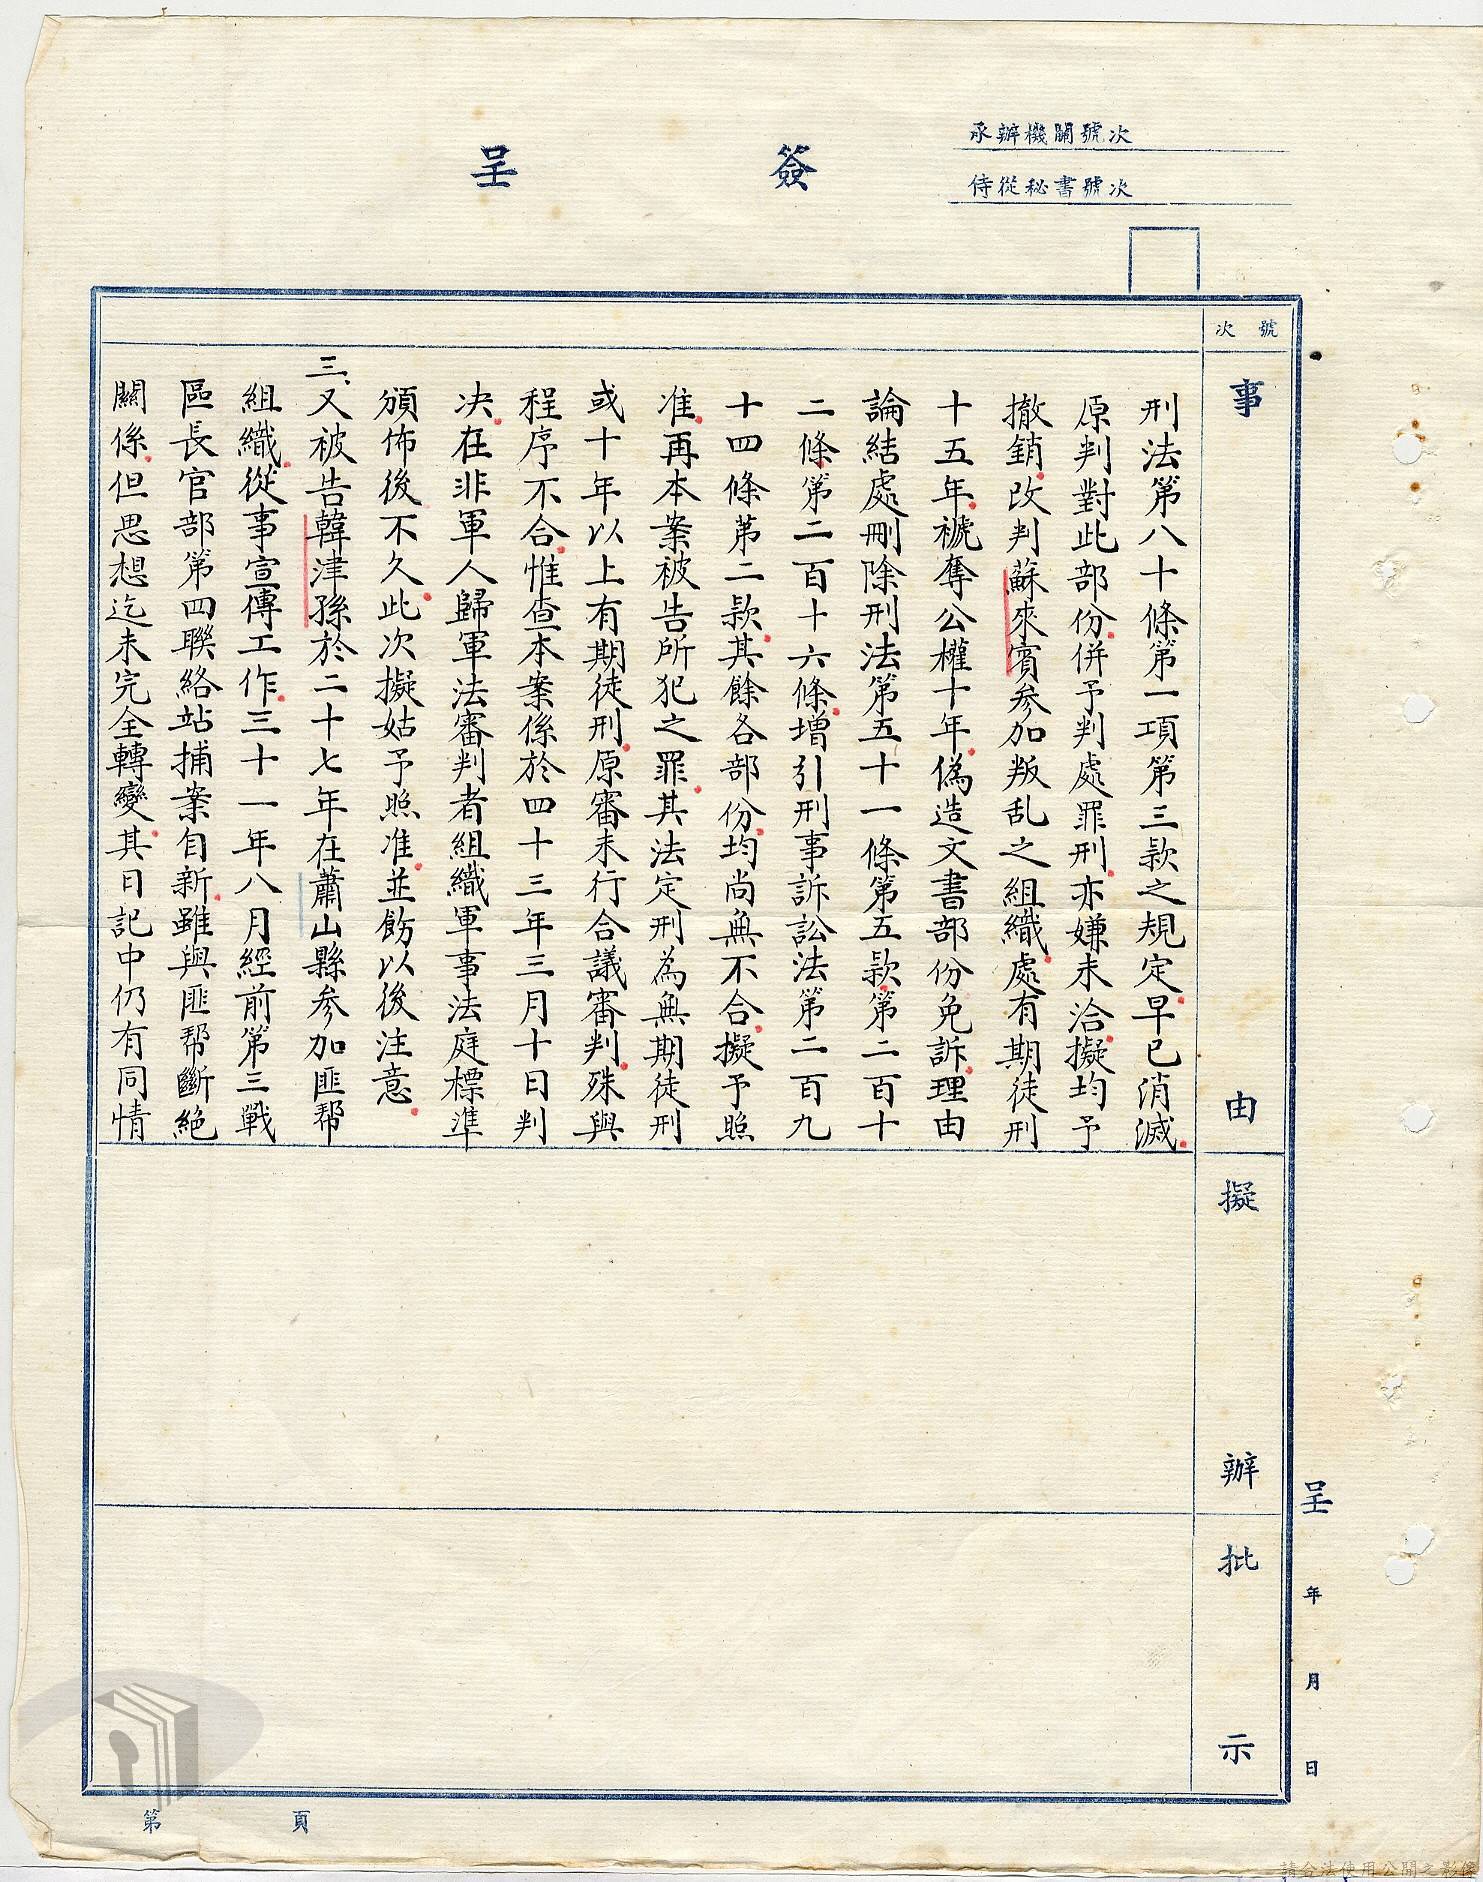 承辦機關號次
侍從秘書號次
簽呈
號次
事由
刑法第八十條第一項第三款之規定早已消滅
原判對此部份併予判處罪刑亦嫌未洽擬均予
撤銷改判蘇來賓參加叛乱之組織處有期徒刑
十五年褫奪公權十年偽造文書部份免訴理由
論結處刪除刑法第五十一條第五款第二百十
二條第二百十六條增引刑事訴訟法第二百九
十四條第二款其餘各部份均尚無不合擬予照
准再本案被告所犯之罪其法定刑為無期徒刑
或十年以上有期徒刑原審未行合議審判殊與
程序不合惟查本案係於四十三年三月十日判
決在非軍人歸軍法審判者組織軍事法庭標準
頒佈後不久此次擬姑予照准並飭以後注意
三、又被告韓津孫於二十七年在蕭山縣參加匪帮
組織從事宣傳工作三十一年八月經前第三戰
區長官部第四聯絡站捕案自新雖與匪帮斷絕
關係但思想迄未完全轉變其日記中仍有同情
擬辦
批示
呈 年 月 日
第 頁
請合法使用公開之影像